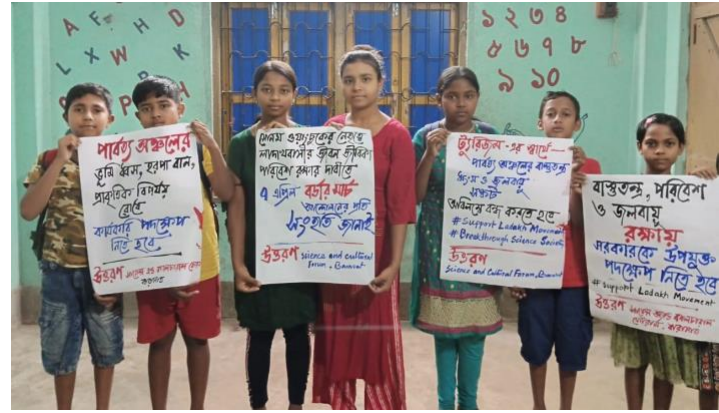 A F H D
L X W K
P H
১ ২ ৩ ৪
৫ ৬ ৭ ৮
৯ ১০
পার্বত্য অঞ্চলের
ভূমি ধ্বস, হরপা বান,
প্রাকৃতিক বিপর্যয়
রোধে
কার্যকরি পদক্ষেপ
নিতে হবে
উত্তরণ
সোনম ওয়াংচুকের নেতৃত্বে
লাদাখবাসীর জীবন জীবিকা
পরিবেশ রক্ষার দাবীতে
৭ এপ্রিল বর্ডার মার্চ
আন্দোলনের প্রতি
সংহতি জানাই
উত্তরণ science and cultural
Forum, Barasat
ট্যুরিজম-এর স্বার্থে
পার্বত্য অঞ্চলের বাস্তুতন্ত্র
ধ্বংস ও জলবায়ু
সঙ্কট
অবিলম্বে বন্ধ করতে হবে
# Support Ladakh Movement
# Breakthrough Science Society
উত্তরণ
Science and Cultural Forum, Barasat
বাস্তুতন্ত্র, পরিবেশ
ও জলবায়ু
রক্ষায়
সরকারকে উপযুক্ত
পদক্ষেপ নিতে হবে
# Support Ladakh Movement
উত্তরণ সায়েন্স অ্যান্ড কালচারাল
ফোরাম, বারাসাত